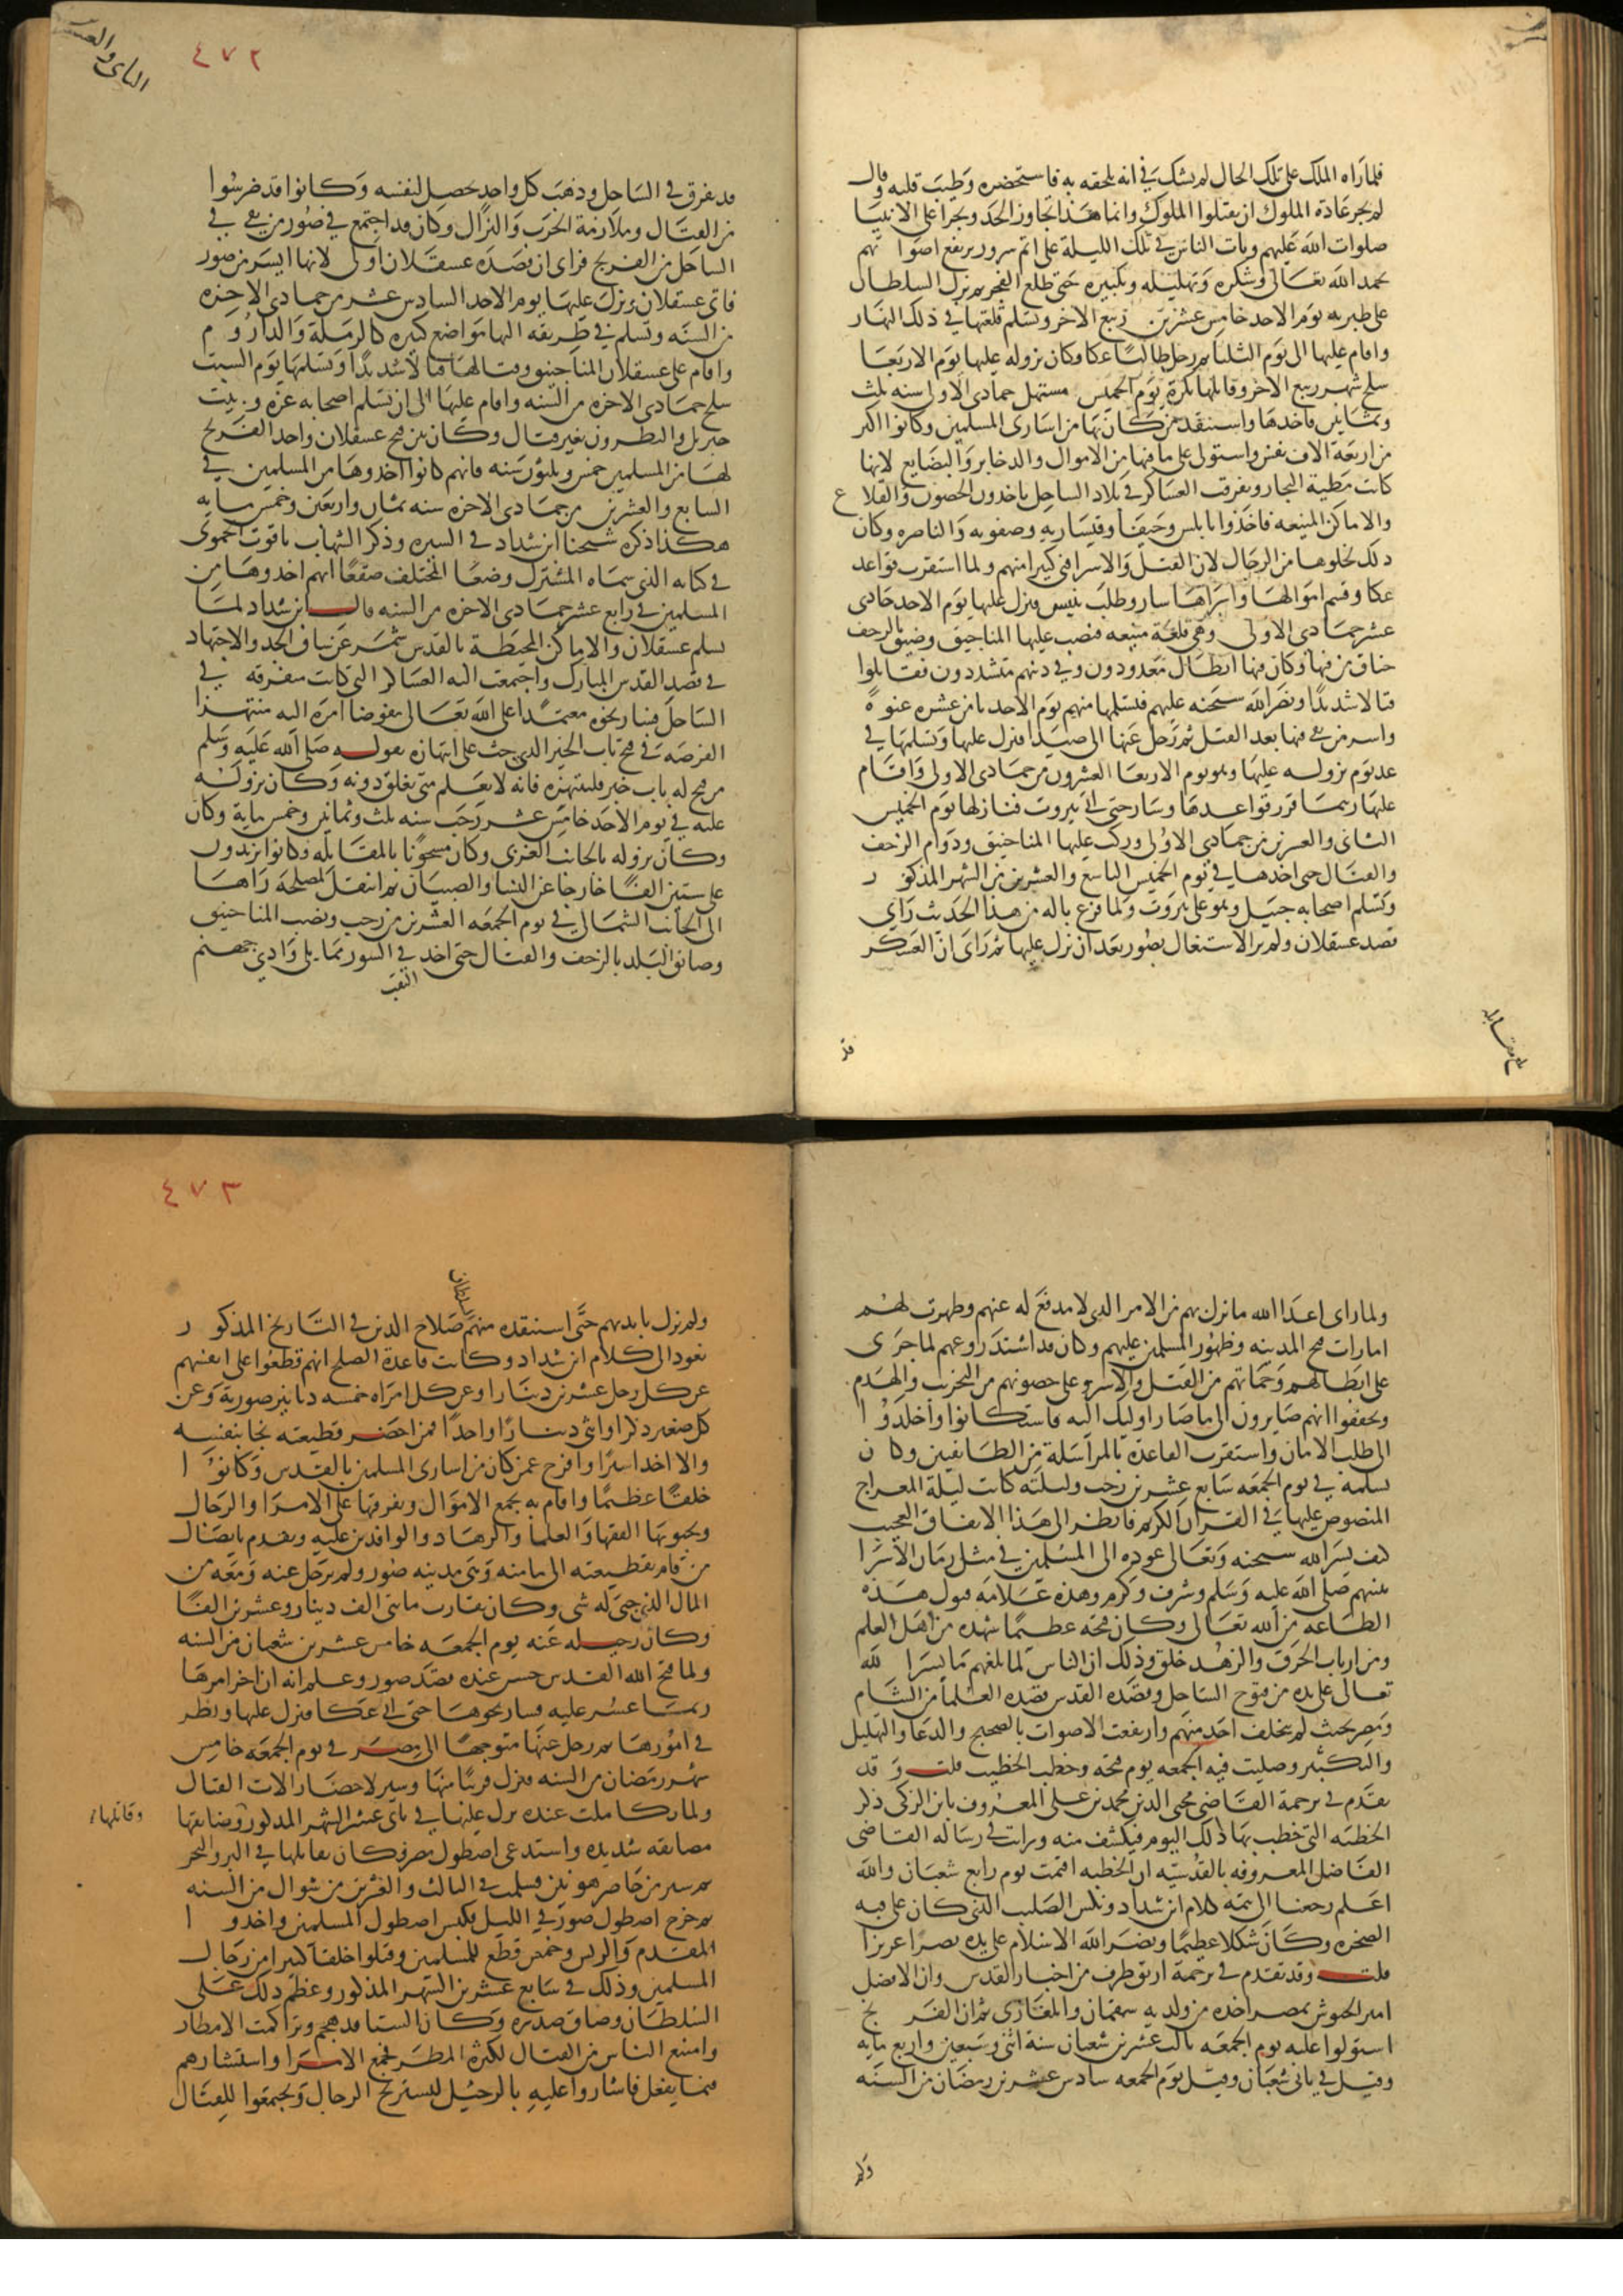 فلما رآه الملك على تلك الحال لم يشك في انه يلحقه به فاستحضره وطيب قلبه وقال
لم يجر عادة الملوك ان يقتلوا الملوك وانما هذا تجاوز الحد وتجرا على الانبيا
صلوات الله عليهم وبات الناس في تلك الليلة على اتم سرور ترتفع اصواتهم
بحمد الله تعالى وشكره وتهليله وتكبيره حتى طلع الفجر ثم نزل السلطان
على طبريه يوم الاحد خامس عشرين ربيع الاخر وتسلم قلعتها في ذلك النهار
واقام عليها الى يوم الثلثا ثم رحل طالبًا عكا وكان نزوله عليها يوم الاربعا
سلخ شهر ربيع الاخر وقاتلها بكرة يوم الخميس مستهل جمادى الاولى سنه ثلث
وثمانين فاخدها واستنقد من كان بها من اسارى المسلمين وكانوا اكثر
من اربعة الاف نفس واستولى على ما فيها من الاموال والدخاير والبضايع لانها
كانت مظنة التجار وتفرقت العساكر في بلاد الساحل ياخدون الحصون والقلاع
والاماكن المنيعه فاخذوا نابلس وحيفا وقيساريه وصفوريه والناصره وكان
دلك لخلوها من الرجال لان القتل والاسر افنى كثيرا منهم ولما استقرت قواعد
عكا وقسم اموالها واسراها سار وطلب تبنين فنزل عليها يوم الاحد حادى
عشر جمادى الاولى وهي قلعة منيعه فنصب عليها المناجيق وضيق بالزحف
خناق من فيها وكان فيها ابطال معدودون وفي دينهم متشددون فقاتلوا
قتالا شديدًا ونصر الله سبحنه عليهم فتسلمها منهم يوم الاحد ثامن عشره عنوةً
واسر من بقي فيها بعد القتل ثم رحل عنها الى صيدا فنزل عليها وتسلمها في
غد يوم نزوله عليها وهو يوم الاربعا العشرون من جمادى الاولى واقام
عليها ريثما قرر قواعدها وسار حتى اتى بيروت فنازلها يوم الخميس
الثانى والعشرين من جمادى الاولى وركب عليها المناجنيق ودوام الزحف
والقتال حتى اخدها في يوم الخميس التاسع والعشرين من الشهر المذكور
وتسلم اصحابه جبيل وهو على بيروت ولما فرغ باله من هذا الحديث راي
قصد عسقلان ولم ير الاشتغال بصور بعد ان نزل عليها ثم راى ان العسكر
قد
بلغ مقابلة
٤٧٢
قد تفرق في الساحل وذهب كل واحد يحصل لنفسه وكانوا قد ضرسوا
من القتال وملازمة الحرب والنزال وكان قد اجتمع في صور من بقى في
الساحل من الفرنج فراى ان قصده عسقلان اولى لانها ايسر من صور
فاتى عسقلان ونزل عليها يوم الاحد السادس عشر من جمادى الاخره
من السنه وتسلم في طريقه اليها مواضع كثيره كالرملة والداروم
واقام على عسقلان المناجنيق وقاتلها قتالا شديدًا وتسلمها يوم السبت
سلخ جمادى الاخره من السنه واقام عليها الى ان تسلم اصحابه غزه وبيت
جبريل والنطرون بغير قتال وكان بين فتح عسقلان واخد الفرنج
لها من المسلمين خمس وثلثون سنه فانهم كانوا اخدوها من المسلمين في
السابع والعشرين من جمادى الاخره سنه ثمان واربعين وخمس مايه
هكذا ذكره شيخنا ابن شداد في السيره وذكر الشهاب ياقوت الحموى
في كتابه الذي سماه المشترك وضعًا المختلف صقعًا انهم اخدوها من
المسلمين في رابع عشر جمادى الاخره من السنه قال ابن شداد لما
تسلم عسقلان والاماكن المحيطة بالقدس شمر عن ساق الجد والاجتهاد
في قصد القدس المبارك واجتمعت اليه العساكر التي كانت متفرقه في
الساحل فسار نحوه معتمدًا على الله تعالى مفوضا امره اليه منتهزا
الفرصه في فتح باب الخير الدى حث على انتهازه بقوله صلى الله عليه وسلم
من فتح له باب خير فلينتهزه فانه لا يعلم متى يغلق دونه وكان نزوله
عليه في يوم الاحد خامس عشر رجب سنه ثلث وثمانين وخمس ماية وكان
وكان نزوله بالجانب الغربى وكان مشحونًا بالمقاتله وكانوا يزيدون
على ستين الفًا خارجا عن النسا والصبيان ثم انتقل لمصلحة راها
الى الجانب الشمالي في يوم الجمعه العشرين من رجب ونصب المناجنيق
وضايق البلد بالزحف والقتال حتى اخد في السور مما يلى وادي جهنم
النقب
ولما راى اعدا الله ما نزل بهم من الامر الدى لا مدفع له عنهم وظهرت لهم
امارات فتح المدينه وظهور المسلمين عليهم وكان قد اشتد روعهم لما جرى
على ابطالهم وحماتهم من القتل والاسر وعلى حصونهم من التخريب والهدم
وتحققوا انهم صايرون الى ما صار اوليك اليه فاستكانوا واخلدوا
الى طلب الامان واستقرت القاعدة بالمراسلة من الطايفين وكان
تسلمه في يوم الجمعه سابع عشرين رجب وليلته كانت ليلة المعراج
المنصوص عليها في القران الكريم فانظر الى هذا الاتفاق العجيب
كيف يسر الله سبحنه وتعالى عوده الى المسلمين في مثل زمان الاسرا
بنبيهم صلى الله عليه وسلم وشرف وكرم وهذه علامة قبول هذه
الطاعه من الله تعالى وكان فتحه عظيمًا شهده من اهل العلم
ومن ارباب الخرق والزهد خلق وذلك ان الناس لما بلغهم ما يسر الله
تعالى على يده من فتوح الساحل وقصده القدس قصده العلما من الشام
ومصر بحيث لم يتخلف احد منهم وارتفعت الاصوات بالضجيج والدعا والتهليل
والتكبير وصليت فيه الجمعه يوم فتحه وخطب الخطيب قلت وقد
تقدم في ترجمة القاضى محيى الدين محمد بن على المعروف بابن الزكى ذكر
الخطبه التي خطب بها ذلك اليوم فيكشف منه ورايت في رساله القاضى
الفاضل المعروفه بالقدسيه ان الخطبه اقيمت يوم رابع شعبان والله
اعلم رجعنا الى تتمة كلام ابن شداد ونكس الصليب الذي كان على قبه
الصخره وكان شكلا عظيمًا ونصر الله الاسلام على يده نصرًا عزيزا
قلت وقد تقدم في ترجمة ارتق طرف من اخبار القدس وان الافضل
امير الجيوش بمصر اخده من ولديه سقمان وايلغازى ثم ان الفرنج
استولوا عليه يوم الجمعه ثالث عشرين شعبان سنة اثنتى وتسعين واربع مايه
وقيل في ثانى شعبان وقيل يوم الجمعه سادس عشرين رمضان من السنه
ولم
٤٧٣
ولم يزل بايديهم حتى استنقده منهم السلطان صلاح الدين في التاريخ المذكور
نعود الى كلام ابن شداد وكانت قاعدة الصلح انهم قطعوا على انفسهم
عن كل رجل عشرين دينارا وعن كل امراه خمسه دنانير صورية وعن
كل صغير ذكر او انثى دينارًا واحدًا فمن احضر قطيعته نجا بنفسه
والا اخد اسيرًا وافرج عمن كان من اسارى المسلمين بالقدس وكانوا
خلقًا عظيمًا واقام به يجمع الاموال ويفرقها على الامرا والرجال
ويحبو بها الفقها والعلما والزهاد والوافدين عليه وتقدم بايصال
من قام بقطيعته الى مامنه وهي مدينه صور ولم يرحل عنه ومعه من
المال الذي جبى له شى وكان يقارب مايتى الف دينار وعشرين الفًا
وكان رحيله عنه يوم الجمعه خامس عشرين شعبان من السنه
ولما فتح الله القدس حسن عنده قصد صور وعلم انه ان اخر امرها
ربما عسر عليه فسار نحوها حتى اتى عكا فنزل عليها ونظر
في امورها ثم رحل عنها متوجهًا الى مصر في يوم الجمعه خامس
شهر رمضان من السنه فنزل قريبًا منها وسير لاحضار الات القتال
ولما تكاملت عنده نزل عليها في ثانى عشر الشهر المدكور وضايقها
وقاتلها
مضايقه شديده واستدعى اصطول مصر وكان يقاتلها في البر والبحر
ثم سير من حاصر هونين فسلمت في الثالث والعشرين من شوال من السنه
ثم خرج اصطول صور في الليل فكبس اصطول المسلمين واخدوا
المقدم والريس وخمس قطع للمسلمين وقتلوا خلقا كثيرا من رجال
المسلمين وذلك في سابع عشرين الشهر المذكور وعظم دلك على
السلطان وضاق صدره وكان الشتا قد هجم وتراكمت الامطار
وامتنع الناس من القتال لكثرة المطر فجمع الامرا واستشارهم
فيما يفعل فاشاروا عليه بالرحيل ليستريح الرجال ويجتمعوا للقتال